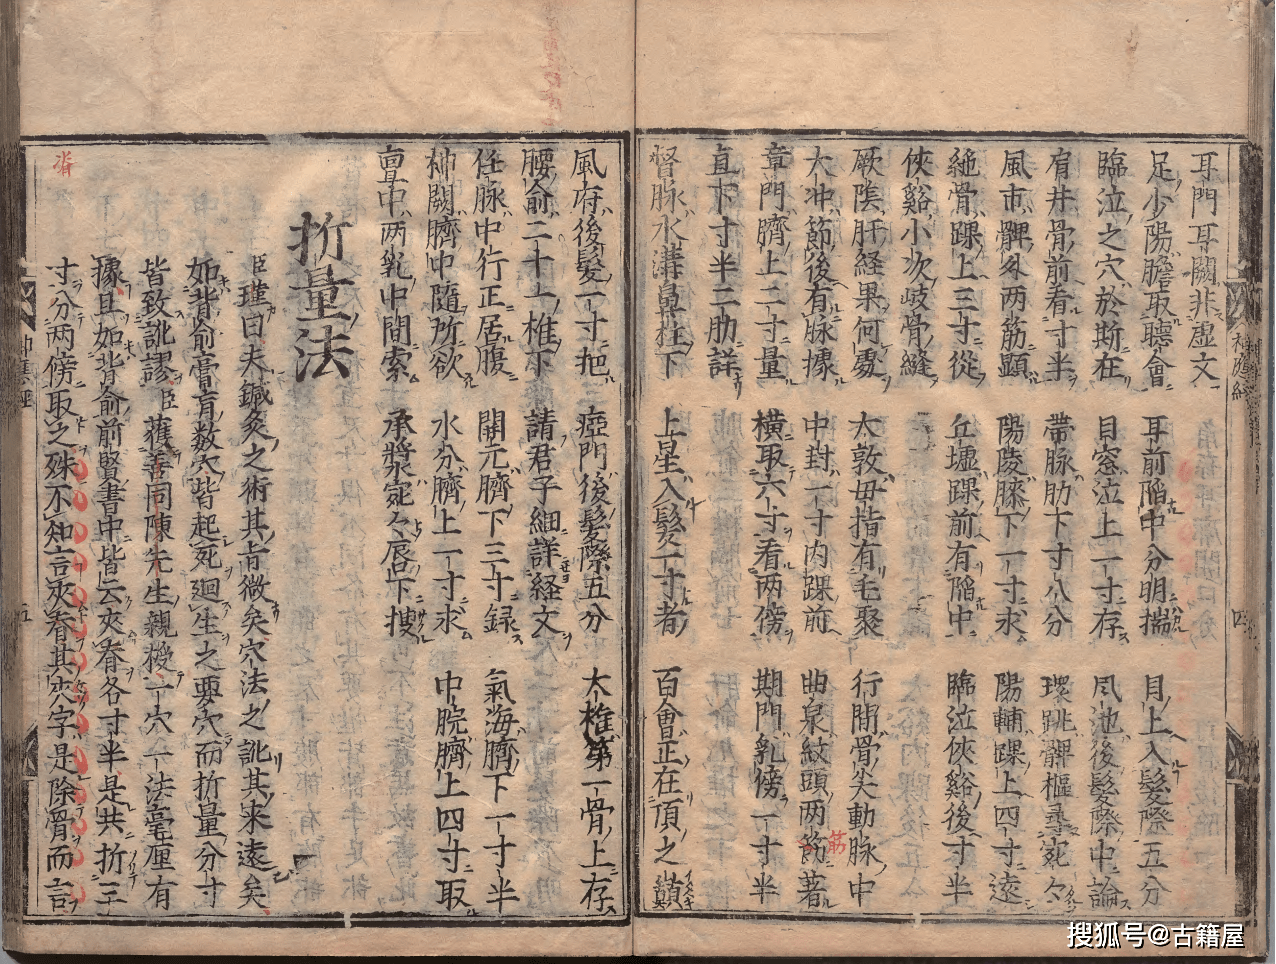 耳門耳闕非虚文
足少陽膽取聽會 耳前陷中分明揣 目上入髮際五分
臨泣之穴於斯在 目窓泣上一寸存 風池後髮際中論
肩井骨前看寸半 帶脉肋下寸八分 環跳髀樞尋宛々
風市髀外两筋顕 陽陵膝下一寸求 陽輔踝上四寸遠
絶骨踝上三寸從 丘墟踝前有陷中 臨泣俠谿後寸半
俠谿小次岐骨縫
厥陰肝経果何處 大敦毋指有毛聚 行間骨尖動脉中
太冲節後有脉據 中封一寸内踝前 曲泉紋頭两筋著
章門臍上二寸量 横取六寸看两傍 期門乳傍一寸半
直下寸半二肋詳
督脉水溝鼻柱下 上星入髮一寸者 百會正在頂之巔
風府後髮一寸把 瘂門後髮際五分 大椎第一骨上存
腰俞二十一椎下 請君子細詳経文
任脉中行正居腹 関元臍下三寸録 氣海臍下一寸半
神闕臍中隨所欲 水分臍上一寸求 中脘臍上四寸取
亶中两乳中間索 承漿宛々唇下搜
折量法
臣瑾曰夫鍼灸之術其肯微矣穴法之訛其来遠矣
如背俞膏肓数穴皆起死廻生之要穴而折量分寸
皆致訛謬臣獲善同陳先生親授一穴一法毫厘有
據且如背俞前賢書中皆云夾脊各寸半是共折三
寸分两傍取之殊不知言夾脊其夾字是除骨而言
脊
筋
四
五
搜狐号@古籍屋